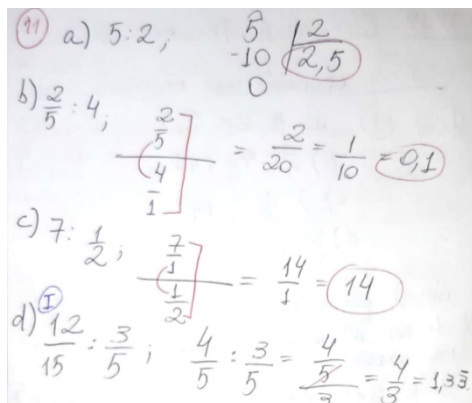 11 a) 5 : 2 ; 5 | 2
-10 2,5
0
b) 2/5 : 4 ; (2/5)/(4/1) = 2/20 = 1/10 = 0,1
c) 7 : 1/2 ; (7/1)/(1/2) = 14/1 = 14
I
d) 12/15 : 3/5 ; 4/5 : 3/5 = (4/5)/3 = 4/3 = 1,33